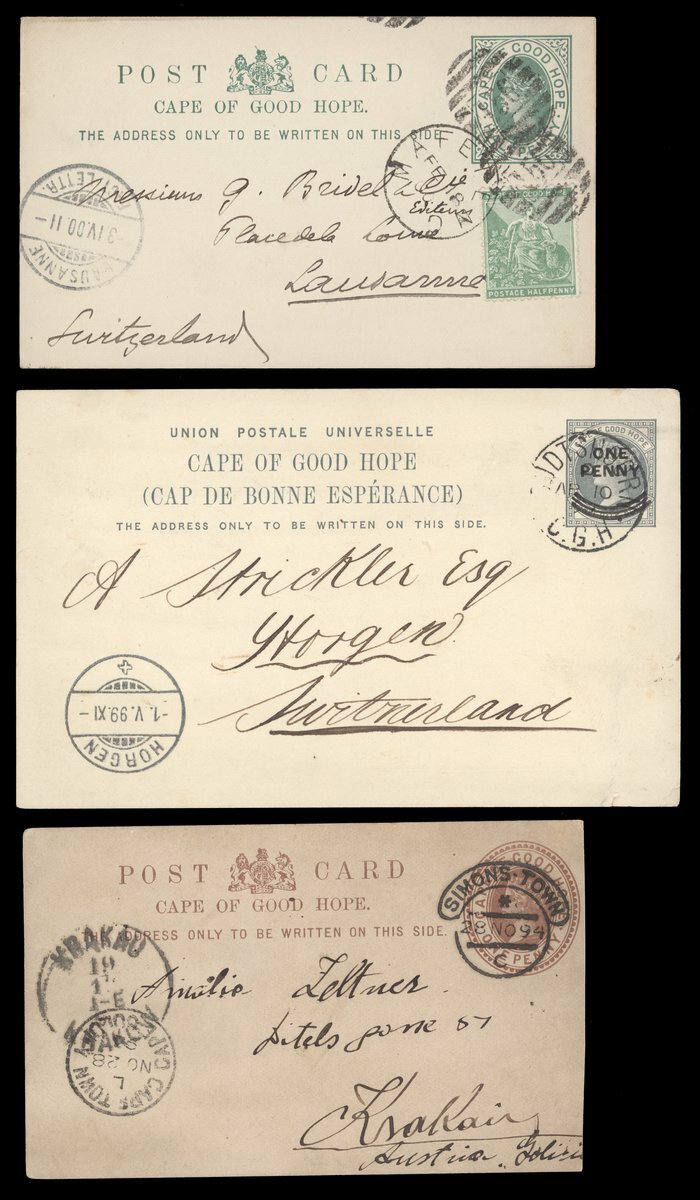 POST CARD
CAPE OF GOOD HOPE.
THE ADDRESS ONLY TO BE WRITTEN ON THIS SIDE
CAPE OF GOOD HOPE
HALFPENNY
MAFE
FE
Messieurs G. Bridel & Cie
Editeurs
Place de la Louve
Lausanne
Switzerland
POSTAGE HALFPENNY
LAUSANNE
-3 IV.00 11-
UNION POSTALE UNIVERSELLE
CAPE OF GOOD HOPE
(CAP DE BONNE ESPÉRANCE)
THE ADDRESS ONLY TO BE WRITTEN ON THIS SIDE.
OF GOOD HOPE
ONE
PENNY
10
C.G.H
A Strickler Esq
Horgen
Switzerland
-1.V.99.XI-
HORGEN
POST CARD
CAPE OF GOOD HOPE.
ADDRESS ONLY TO BE WRITTEN ON THIS SIDE.
GOOD
ONE PENNY
SIMONS-TOWN
NO 94
C
KRAKAU
19
Amalie Zeltner
57
CAPE TOWN
NO 28
L
Krakau
Austria